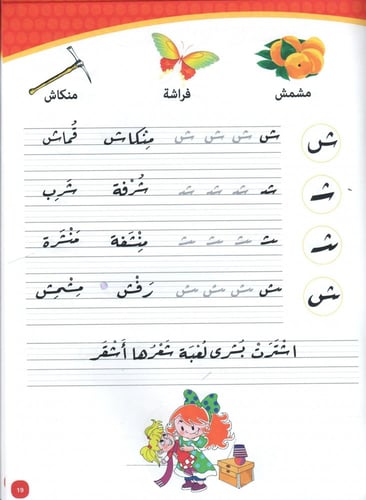 مشمش فراشة منكاش
ش ش ش ش ش مِنْكاش قُماش
شـ شـ شـ شـ شـ شُرْفة شَرِب
ـشـ ـشـ ـشـ ـشـ ـشـ مِنْشَفة مَنْشَرة
ـش ـش ـش ـش ـش رَفْش مِشْمِش
اشْتَرَتْ بُشرى لُعْبَة شَعْرُها أَشْقَر
١٩